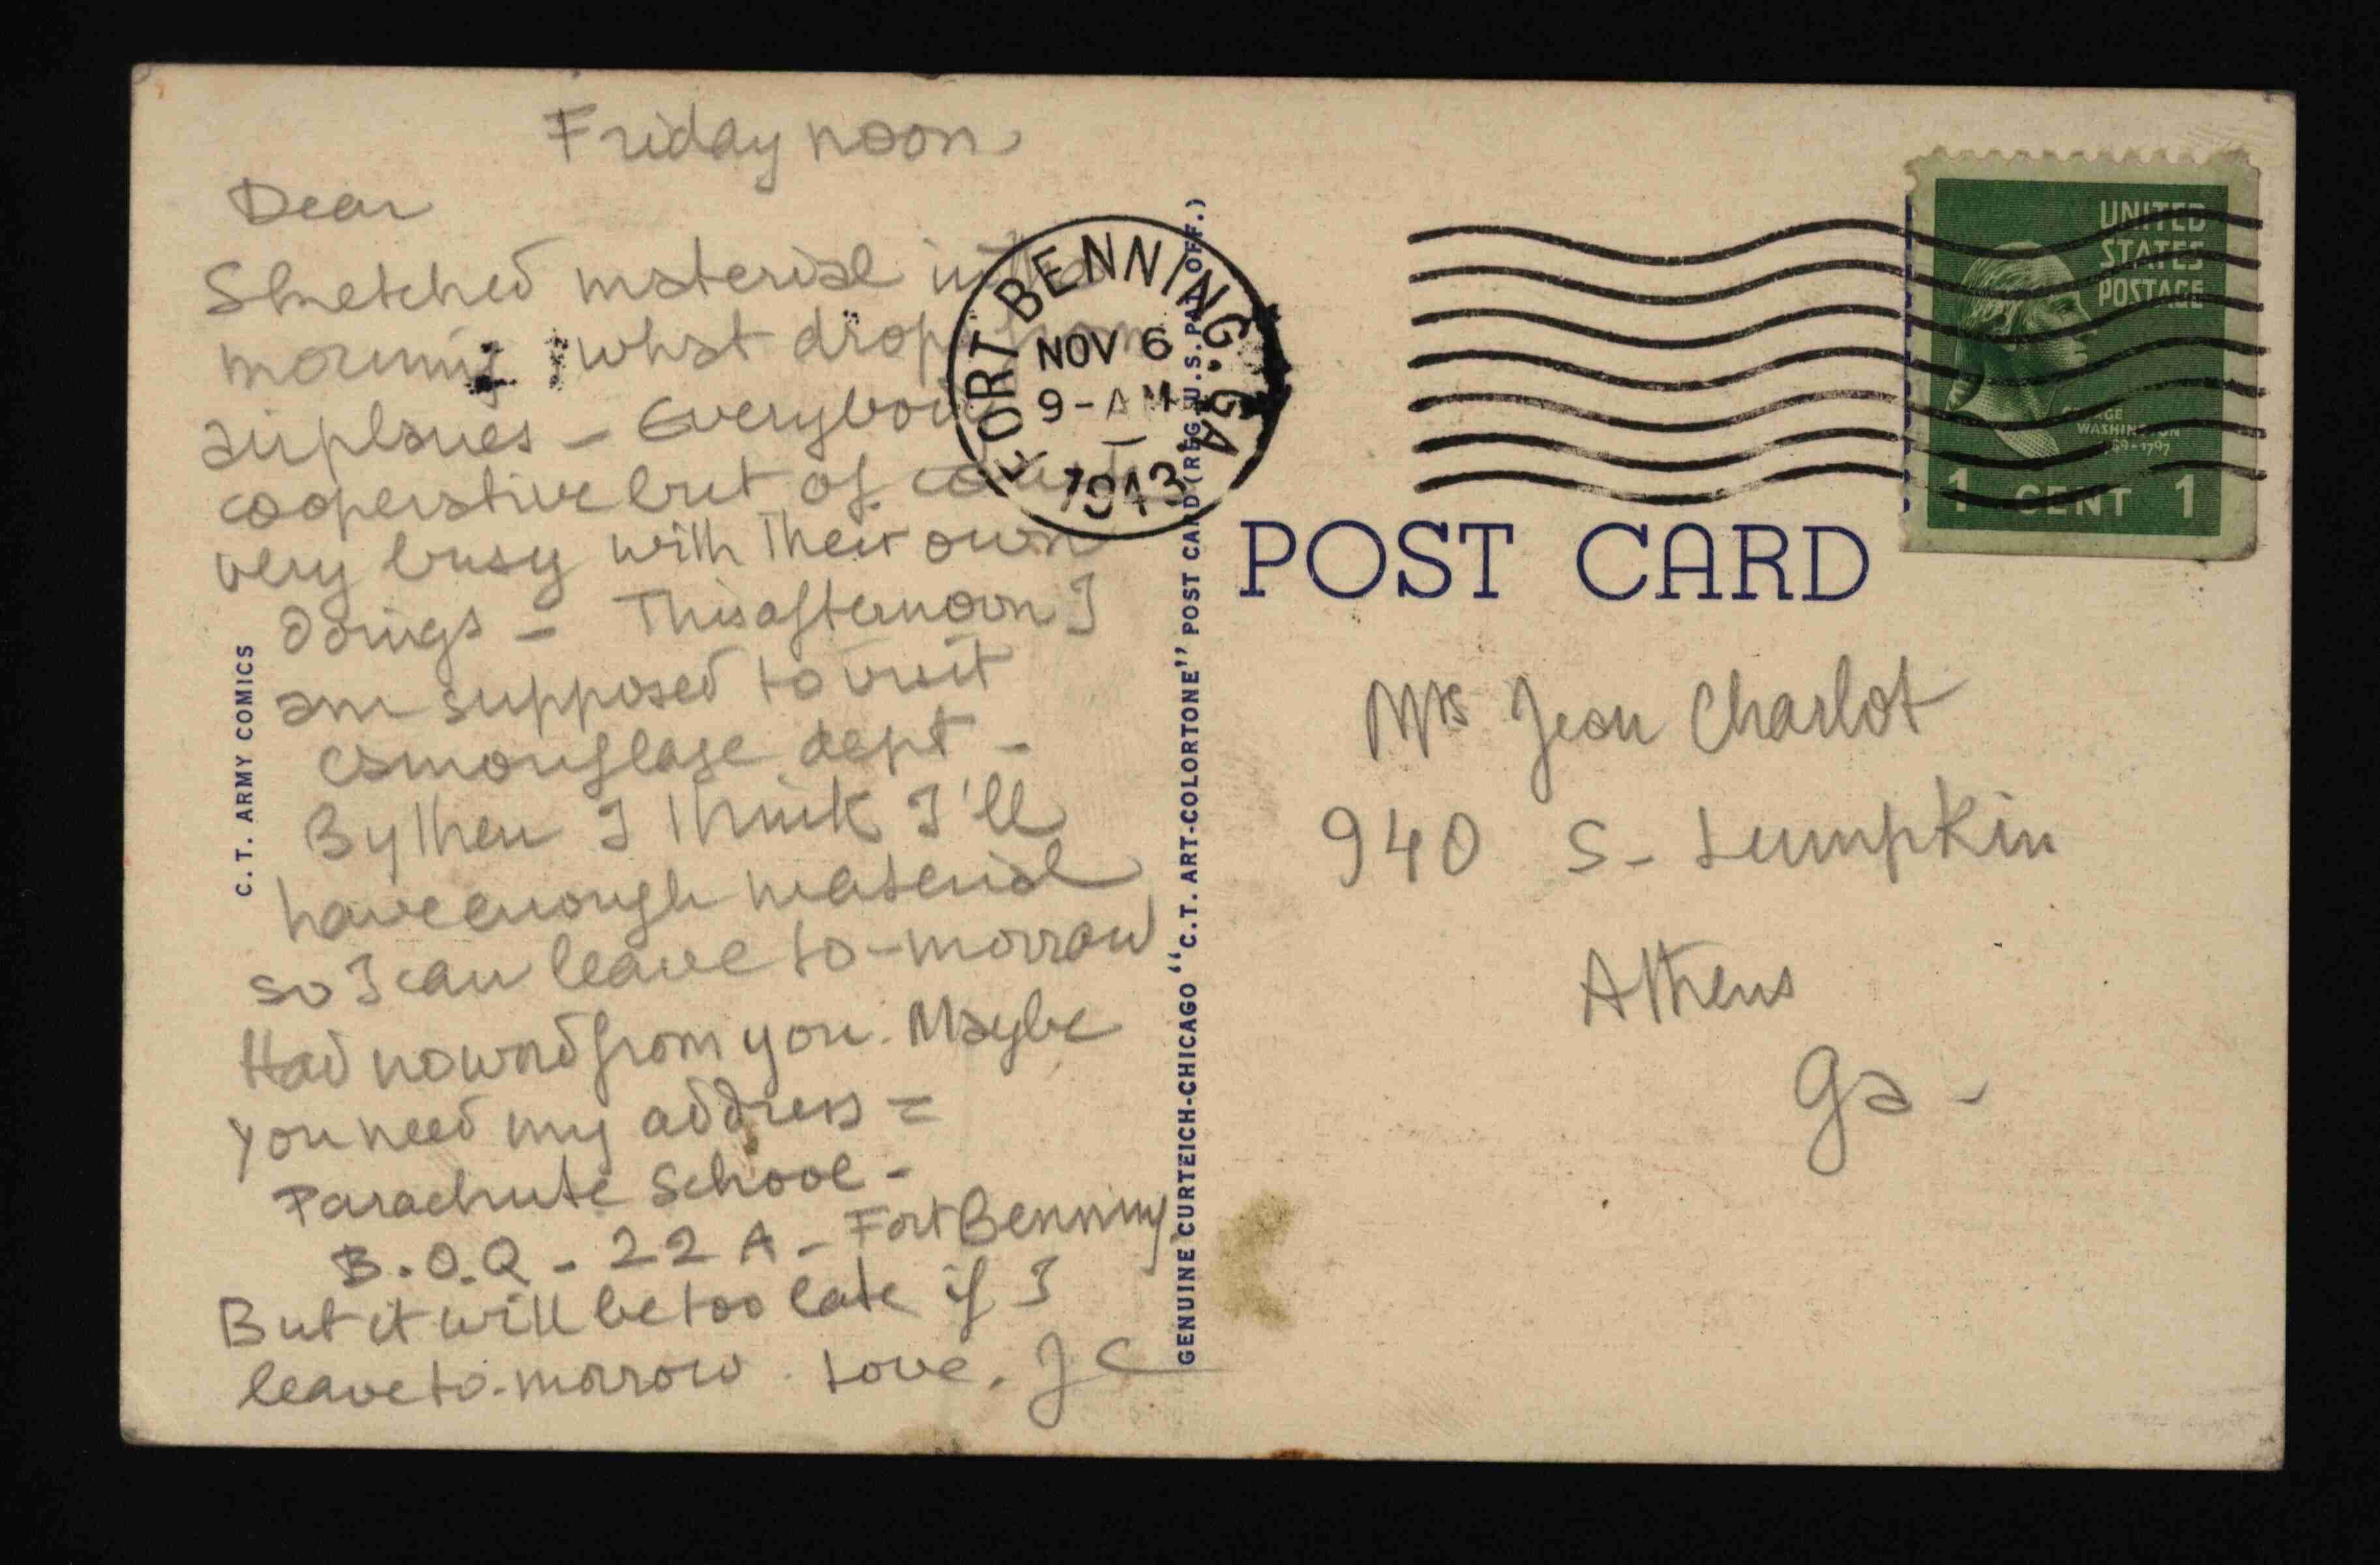 Friday noon
Dear
Sketched material in the
morning, what drops from
airplanes – Everybody
cooperative but of course
very busy with their own
doings – This afternoon I
am supposed to visit
camouflage dept –
By then I think I'll
have enough material
so I can leave to-morrow
Had no word from you. Maybe
you need my address =
Parachute School –
B.O.Q – 22 A – Fort Benning.
But it will be too late if I
leave to-morrow. Love. JC
C. T. ARMY COMICS
GENUINE CURTEICH-CHICAGO "C.T. ART-COLORTONE" POST CARD (REG. U.S. PAT. OFF.)
FORT BENNING, GA.
NOV 6
9-AM
1943
UNITED
STATES
POSTAGE
GEORGE
WASHINGTON
1789-1797
1 CENT 1
POST CARD
Mrs Jean Charlot
940 S- Lumpkin
Athens
Ga -